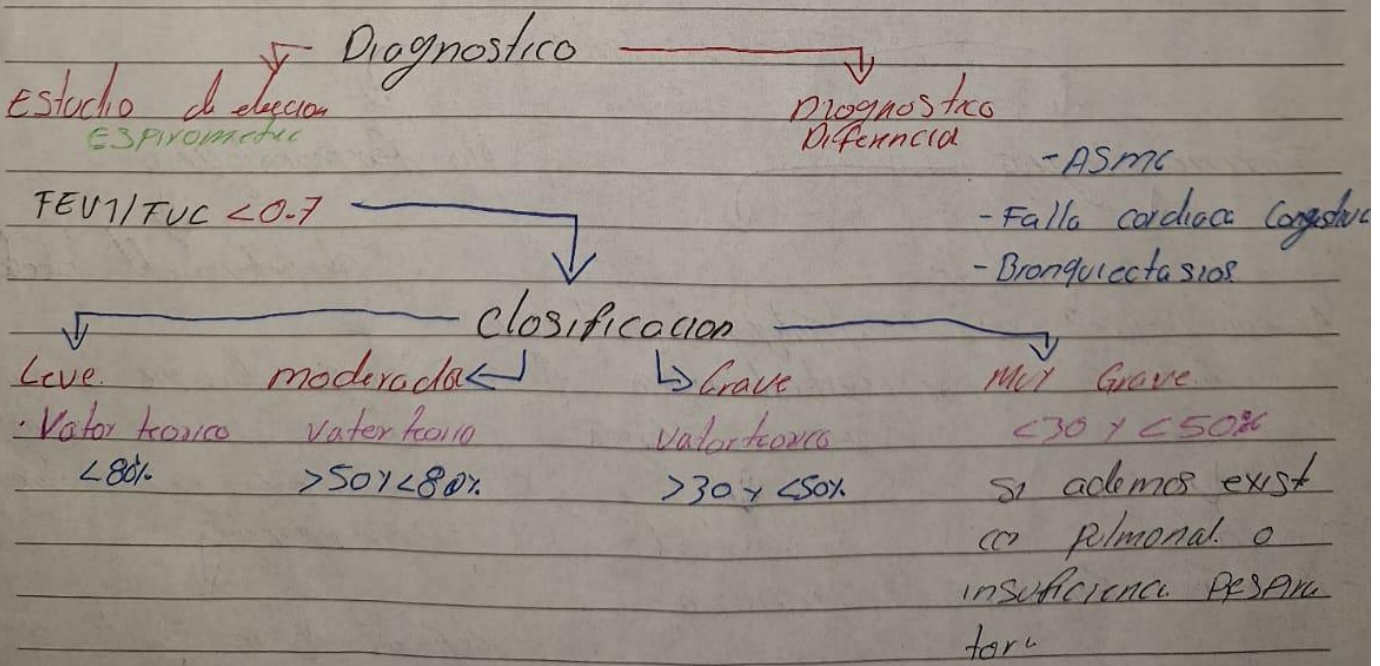 Diagnostico
Estudio de eleccion
Espirometric
Diagnostico
Diferencia
- Asmc
- Falla cardiaca Congestiva
- Bronquiectasias.
FEV1/FVC <0.7
Clasificacion
Leve.
· Valor teorico
<80%
moderada
Valor teorico
>50 y <80%.
Grave
Valor teorico
>30 y <50%
Muy Grave.
<30 y <50%
Si ademas exist
cor Pulmonal o
insuficienca Respira
toria